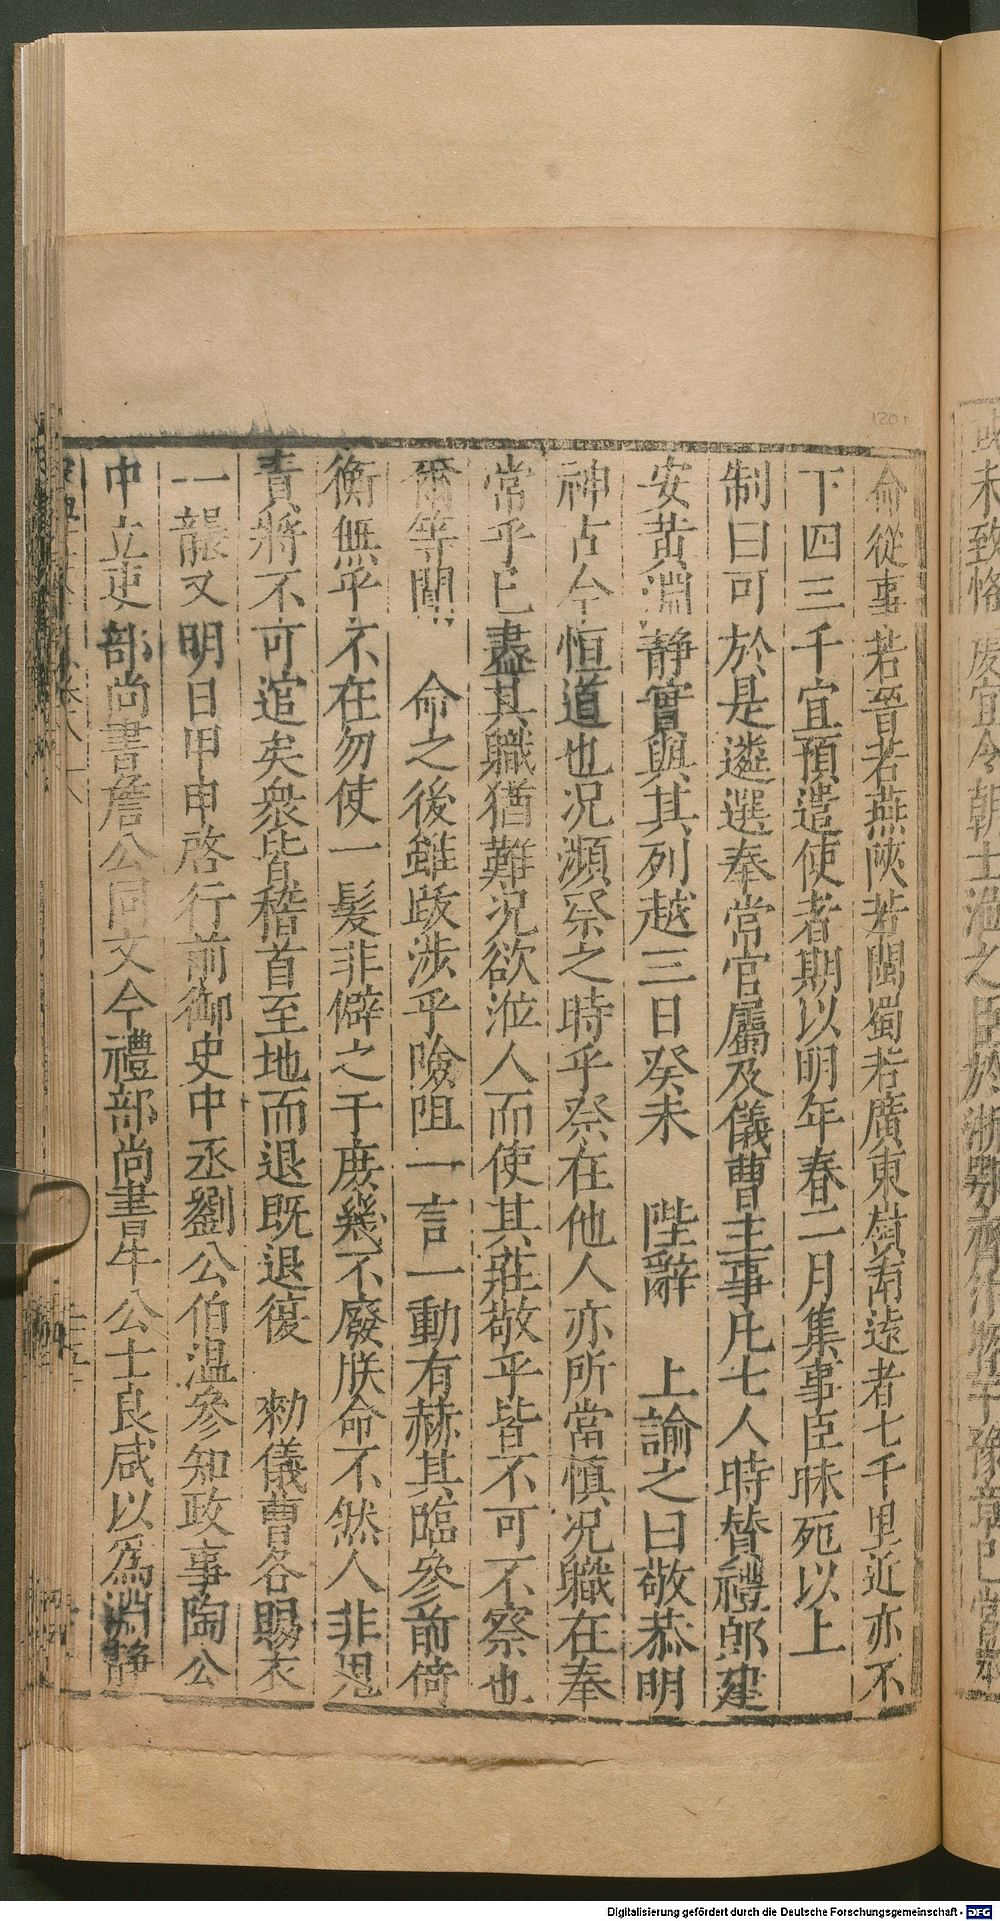 命從事若晉若燕陝若閩蜀若廣東嶺南遠者七千里近亦不
下四三千宜預遣使者期以明年春二月集事臣昧死以上
制曰可於是遴選奉常官屬及儀曹主事凡七人時賛禮郎建
安黃淵靜實與其列越三日癸未 陛辭 上諭之曰敬恭明
神古今恒道也况瀕祭之時乎祭在他人亦所當慎况職在奉
常乎已盡其職猶難况欲涖人而使其莊敬乎皆不可不察也
爾等聞 命之後雖跋涉乎險阻一言一動有赫其臨參前倚
衡無乎不在勿使一髮非僻之干庶幾不廢朕命不然人非鬼
責將不可逭矣衆皆稽首至地而退既退復 勑儀曹各賜衣
一襲又明日甲申啓行前御史中丞劉公伯温參知政事陶公
中立吏部尚書詹公同文今禮部尚書牛公士良咸以爲淵靜
Digitalisierung gefördert durch die Deutsche Forschungsgemeinschaft - DFG